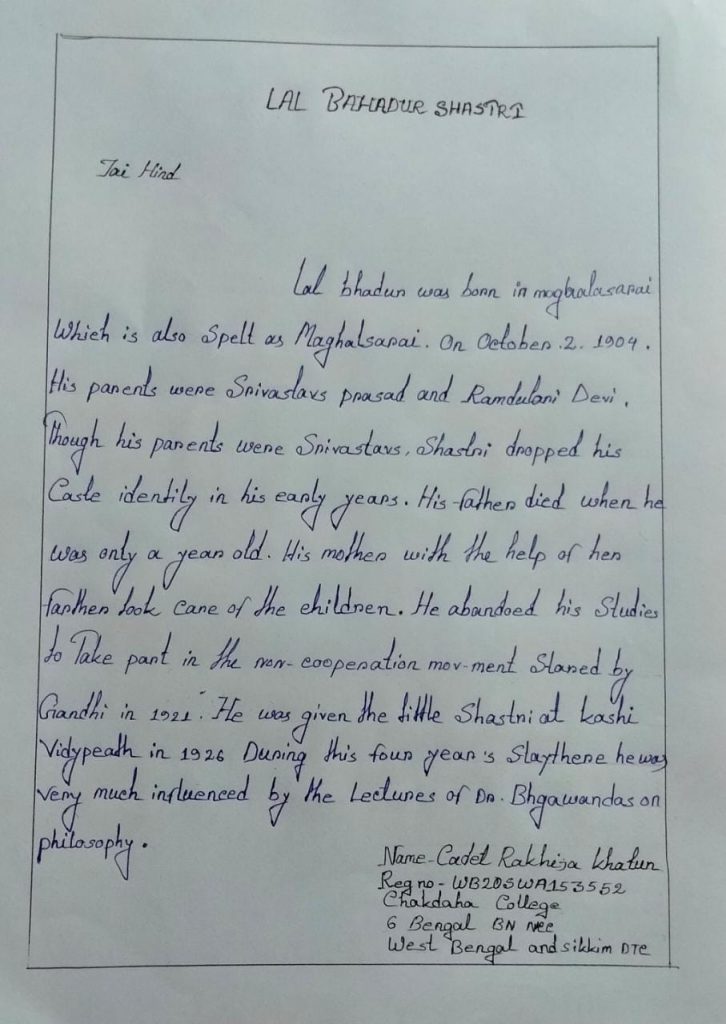 LAL BAHADUR SHASTRI
Jai Hind
Lal bhadur was born in mogbalasarai
Which is also Spelt as Maghalsarai. On October.2. 1904.
His parents were Srivastavs prasad and Ramdulari Devi.
Though his parents were Srivastavs, Shastri dropped his
Caste identity in his early years. His father died when he
was only a year old. His mother with the help of her
farther took care of the children. He abandoed his Studies
to Take part in the non-cooperation mov-ment Stared by
Gandhi in 1921. He was given the tittle Shastri at kashi
Vidypeath in 1926 During this four year's Staythere he was
very much influenced by the Lectures of Dr. Bhgawandas on
philosophy.
Name-Cadet Rakhija Khatun
Reg no- WB20SWA153552
Chakdaha College
6 Bengal BN NCC
West Bengal and sikkim DTE